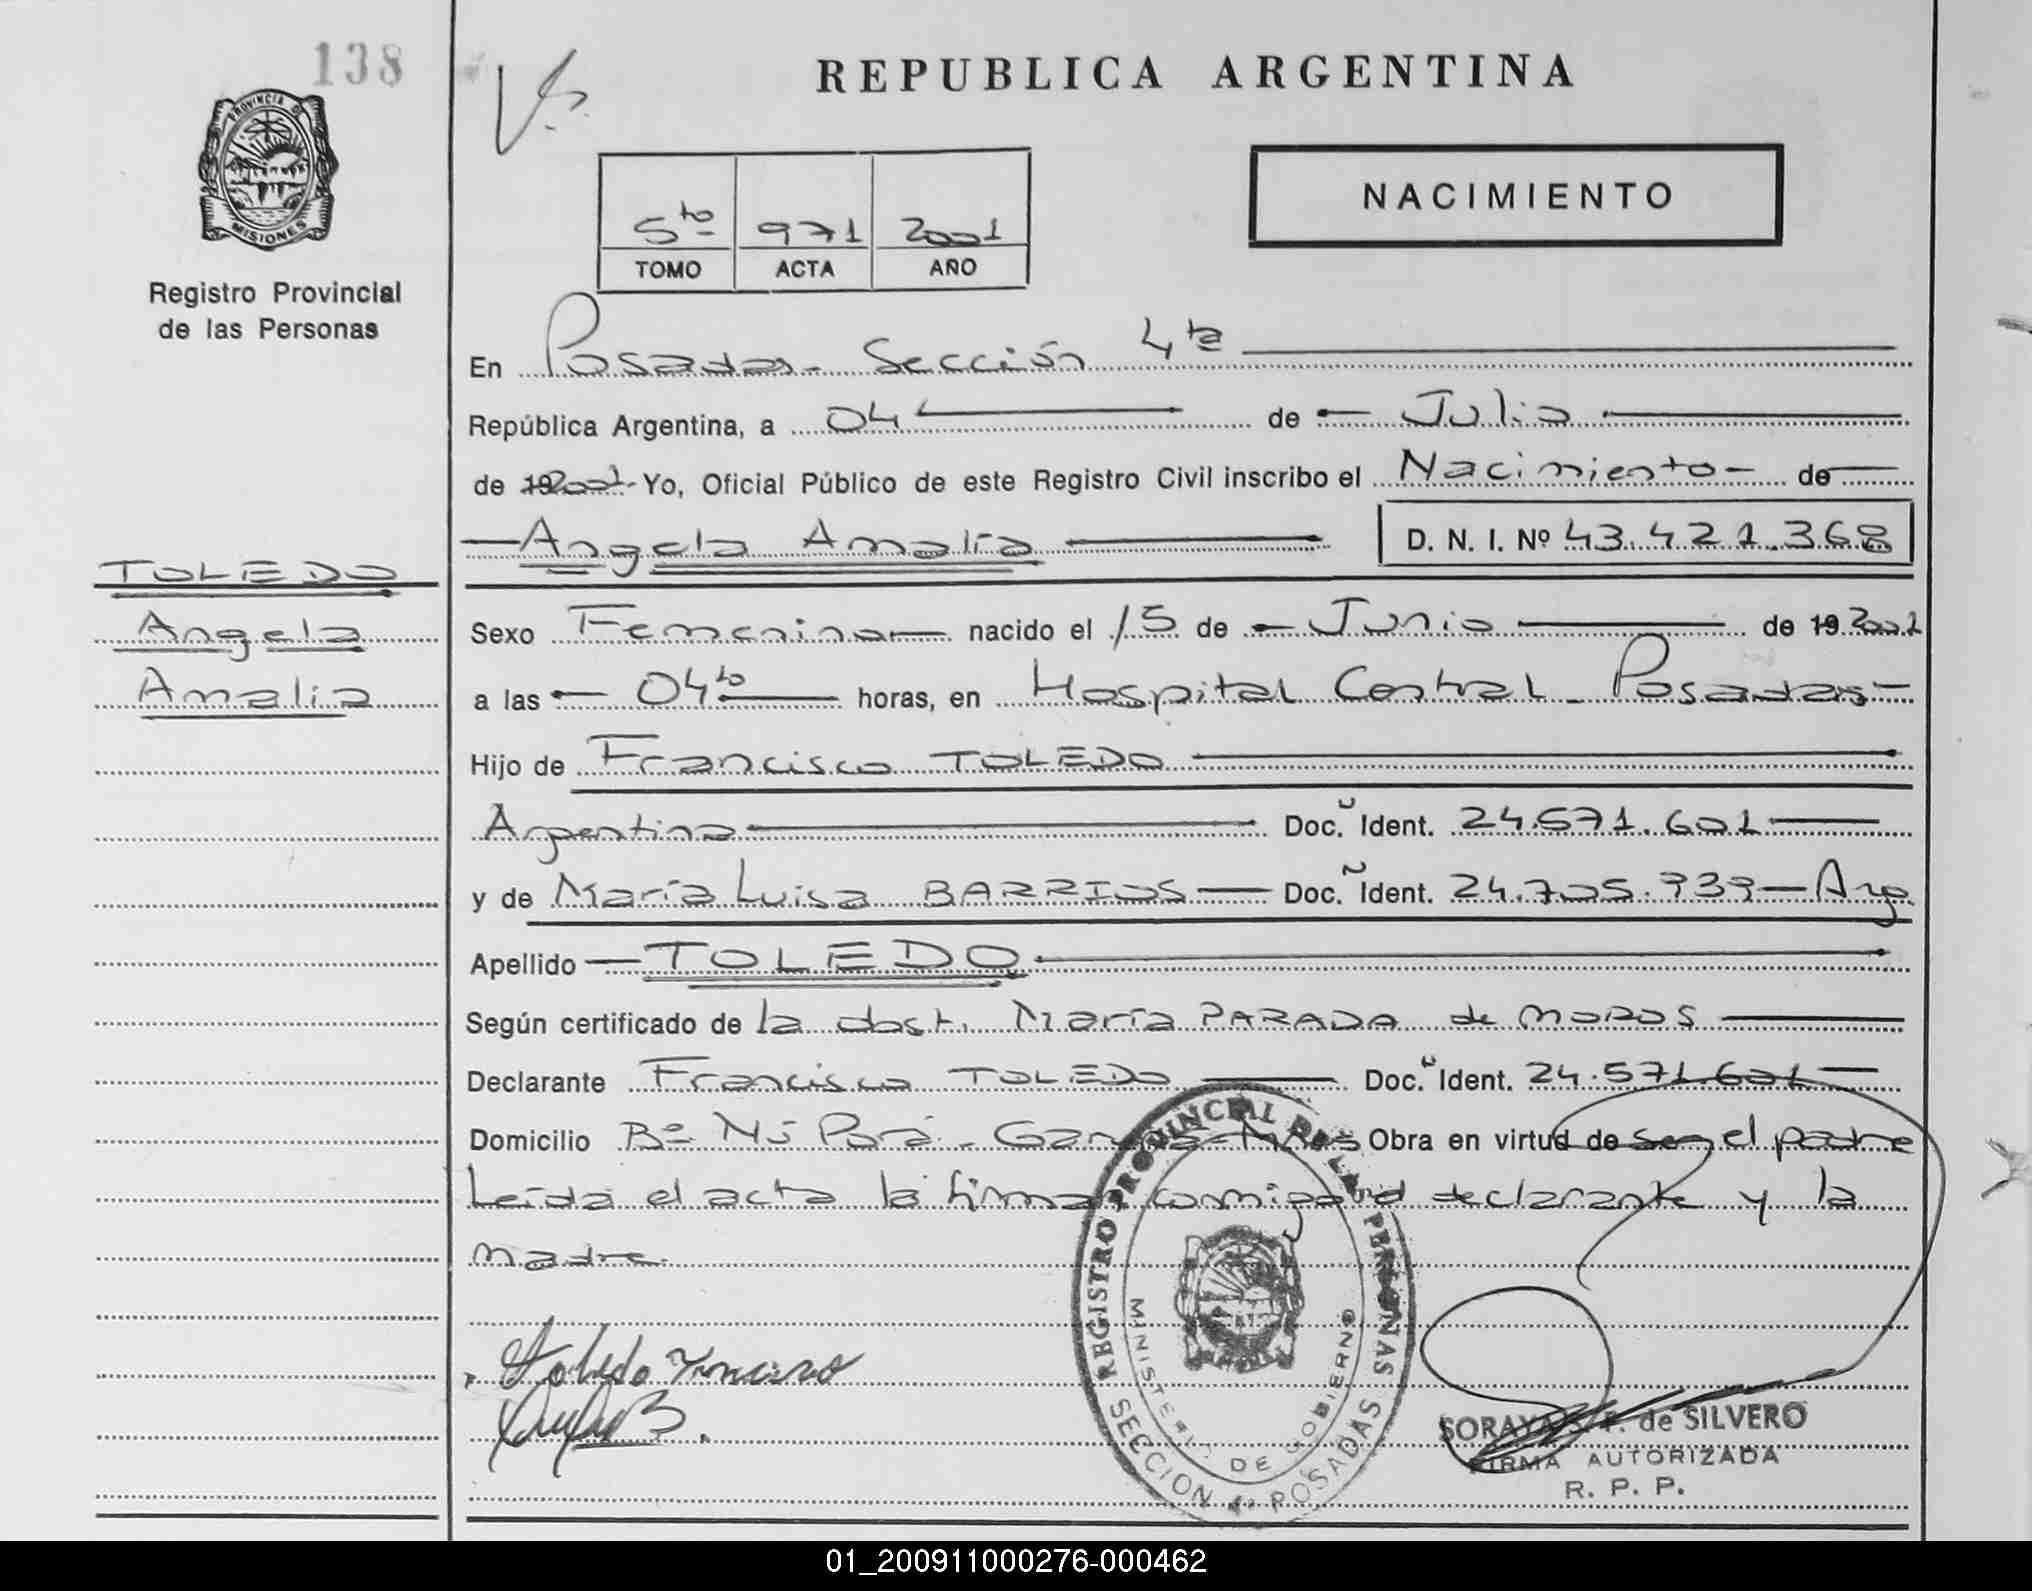 138
PROVINCIA DE
MISIONES
Registro Provincial
de las Personas
TOLEDO
Angela
Amalia
REPUBLICA ARGENTINA
NACIMIENTO
5to 971 2001
TOMO ACTA AÑO
En Posadas - Sección 4ta
República Argentina, a 04 de Julio
de 19 2001 - Yo, Oficial Público de este Registro Civil inscribo el Nacimiento - de
Angela Amalia D. N. I. Nº 43.421.368
Sexo Femenino nacido el 15 de Junio de 19 2001
a las 04to horas, en Hospital Central - Posadas -
Hijo de Francisco TOLEDO
Argentino Doc. Ident. 24.571.601
y de María Luisa BARRIOS Doc. Ident. 24.705.939 - Arg.
Apellido TOLEDO
Según certificado de la obst. María PARADA de MOROS
Declarante Francisco TOLEDO Doc. Ident. 24.571.601
Domicilio Bº Ñú Porá - Garupá - Mnes Obra en virtud de ser el padre
Leída el acta la firma conmigo el declarante y la
madre.
Toledo Francisco
REGISTRO PROVINCIAL DE LAS PERSONAS
MINISTERIO DE GOBIERNO
SECCION 4ª POSADAS
SORAYA de SILVERO
FIRMA AUTORIZADA
R. P. P.
01_200911000276-000462